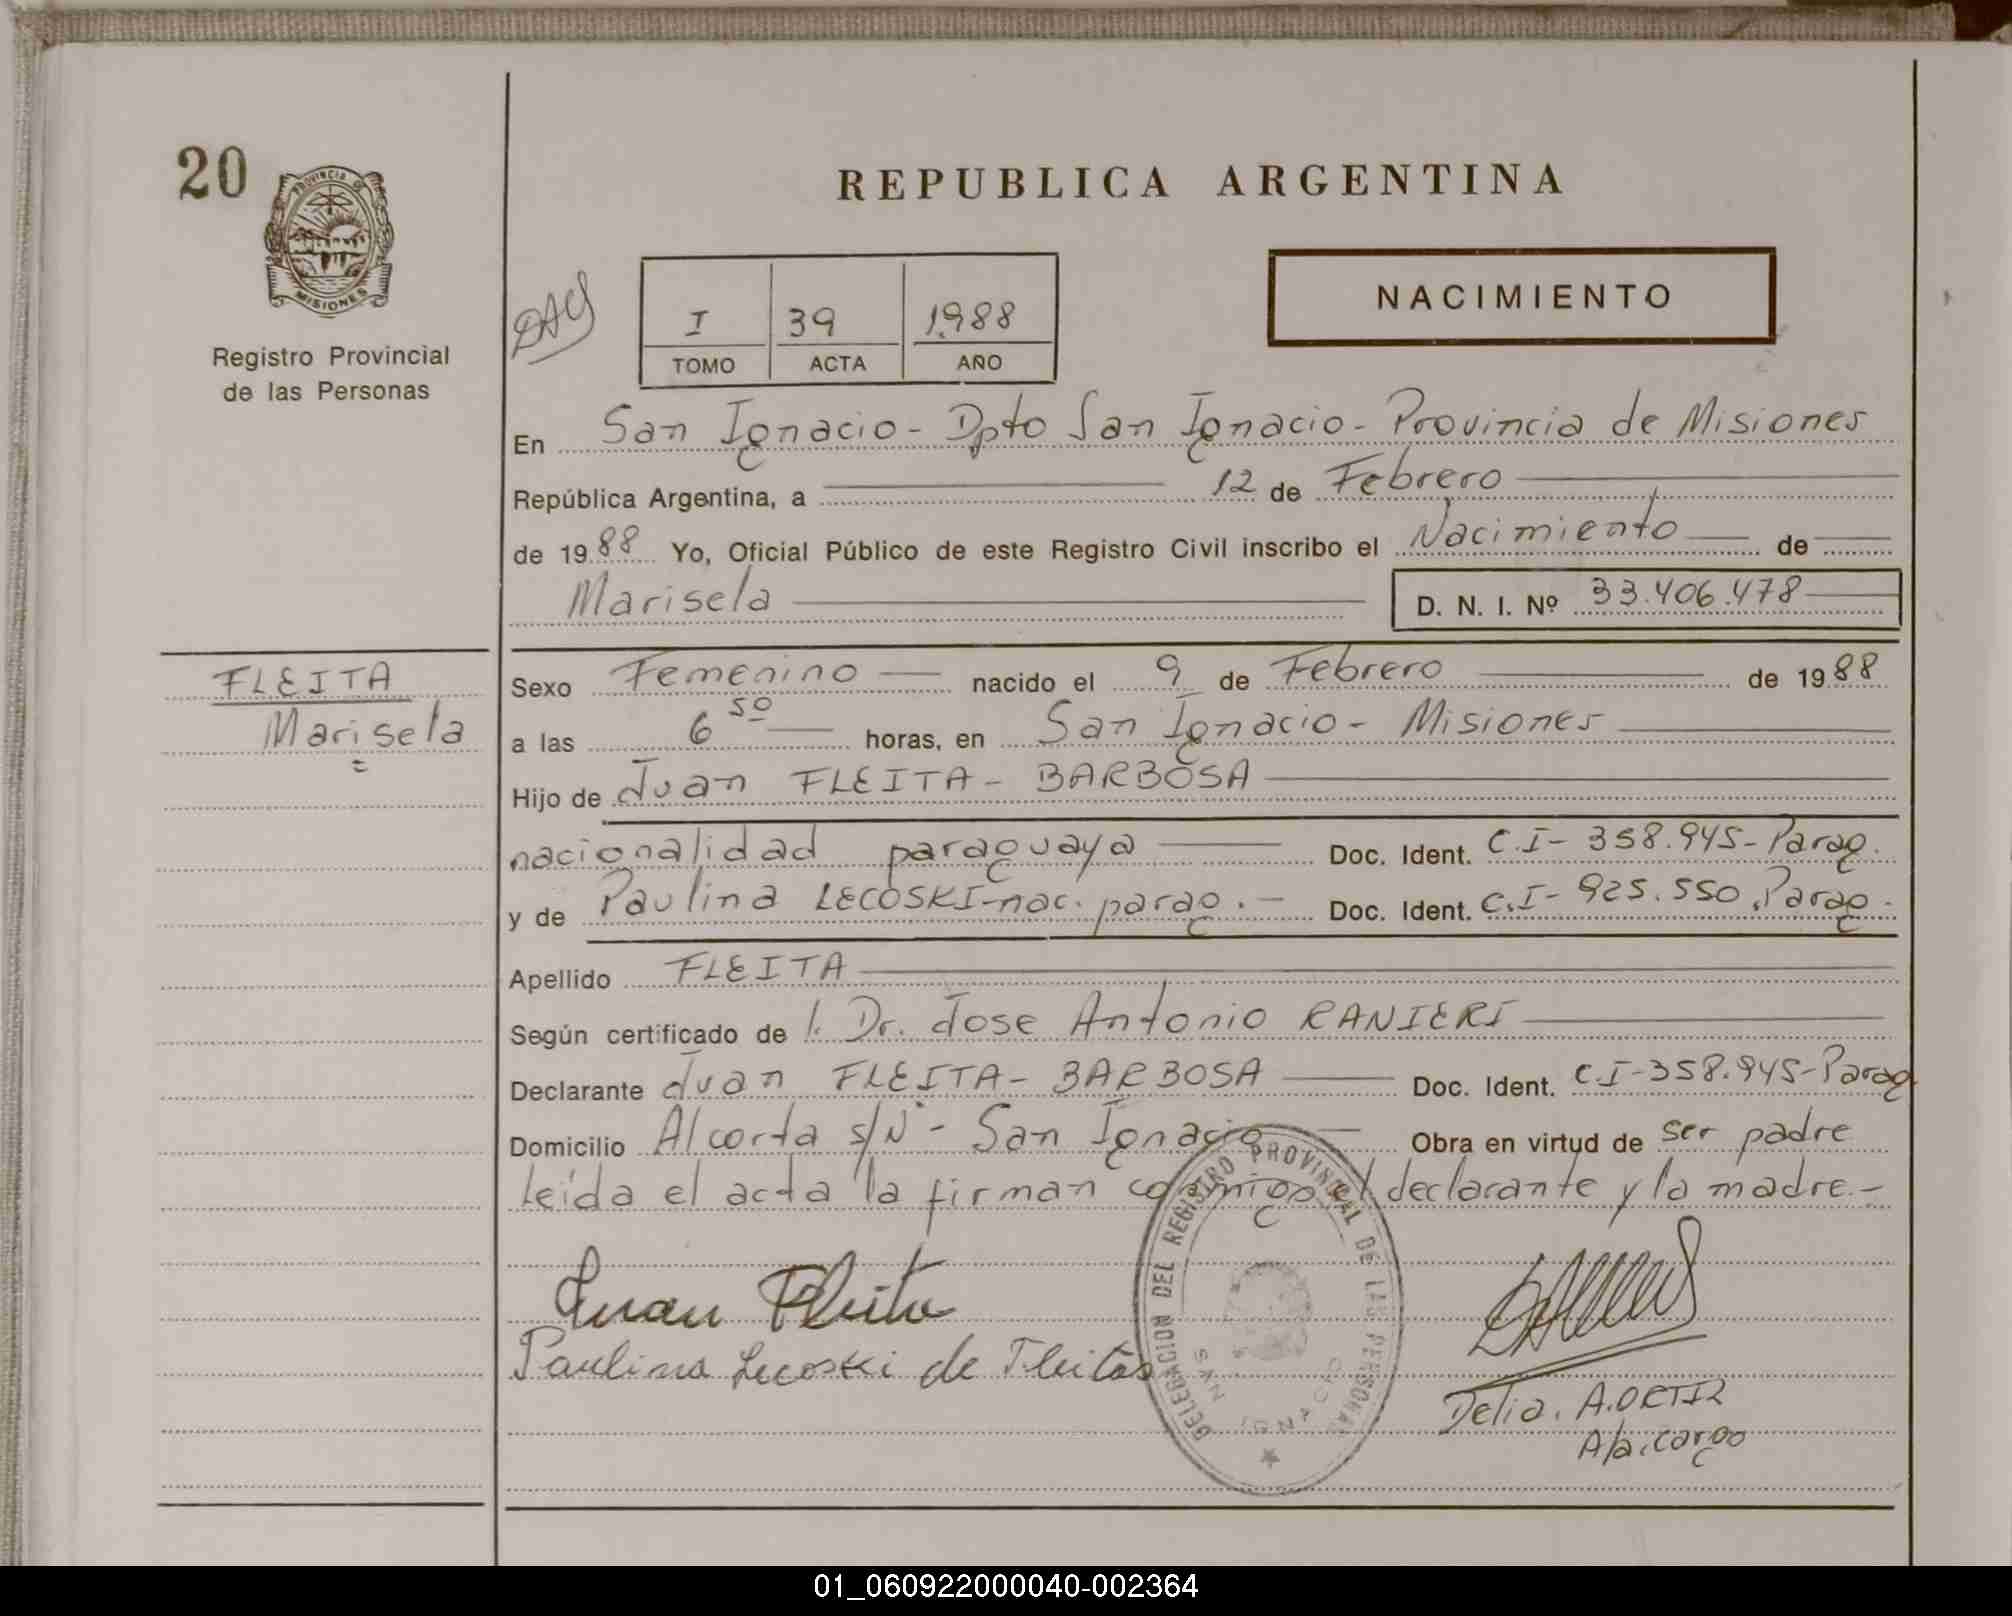 20
PROVINCIA DE
MISIONES
Registro Provincial
de las Personas
REPUBLICA ARGENTINA
I 39 1988
TOMO ACTA AÑO
NACIMIENTO
En San Ignacio - Dpto San Ignacio - Provincia de Misiones
República Argentina, a 12 de Febrero
de 1988 Yo, Oficial Público de este Registro Civil inscribo el Nacimiento de
Marisela D. N. I. Nº 33.406.478
FLEITA
Marisela
Sexo Femenino nacido el 9 de Febrero de 1988
a las 6 50 horas, en San Ignacio - Misiones
Hijo de Juan FLEITA - BARBOSA
nacionalidad paraguaya Doc. Ident. C.I - 358.945 - Parag.
y de Paulina LECOSKI - nac. parag. - Doc. Ident. C.I - 925.550 Parag.
Apellido FLEITA
Según certificado de l. Dr. Jose Antonio RANIERI
Declarante Juan FLEITA - BARBOSA Doc. Ident. C.I - 358.945 - Parag
Domicilio Alcorta s/Nº - San Ignacio Obra en virtud de ser padre
Leída el acta la firman conmigo el declarante y la madre. -
Juan Fleita
Paulina Lecoski de Fleitas
DELEGACION DEL REGISTRO PROVINCIAL DE LAS PERSONAS
SAN IGNACIO
Delia. A. ORTIZ
A/a. cargo
01_060922000040-002364